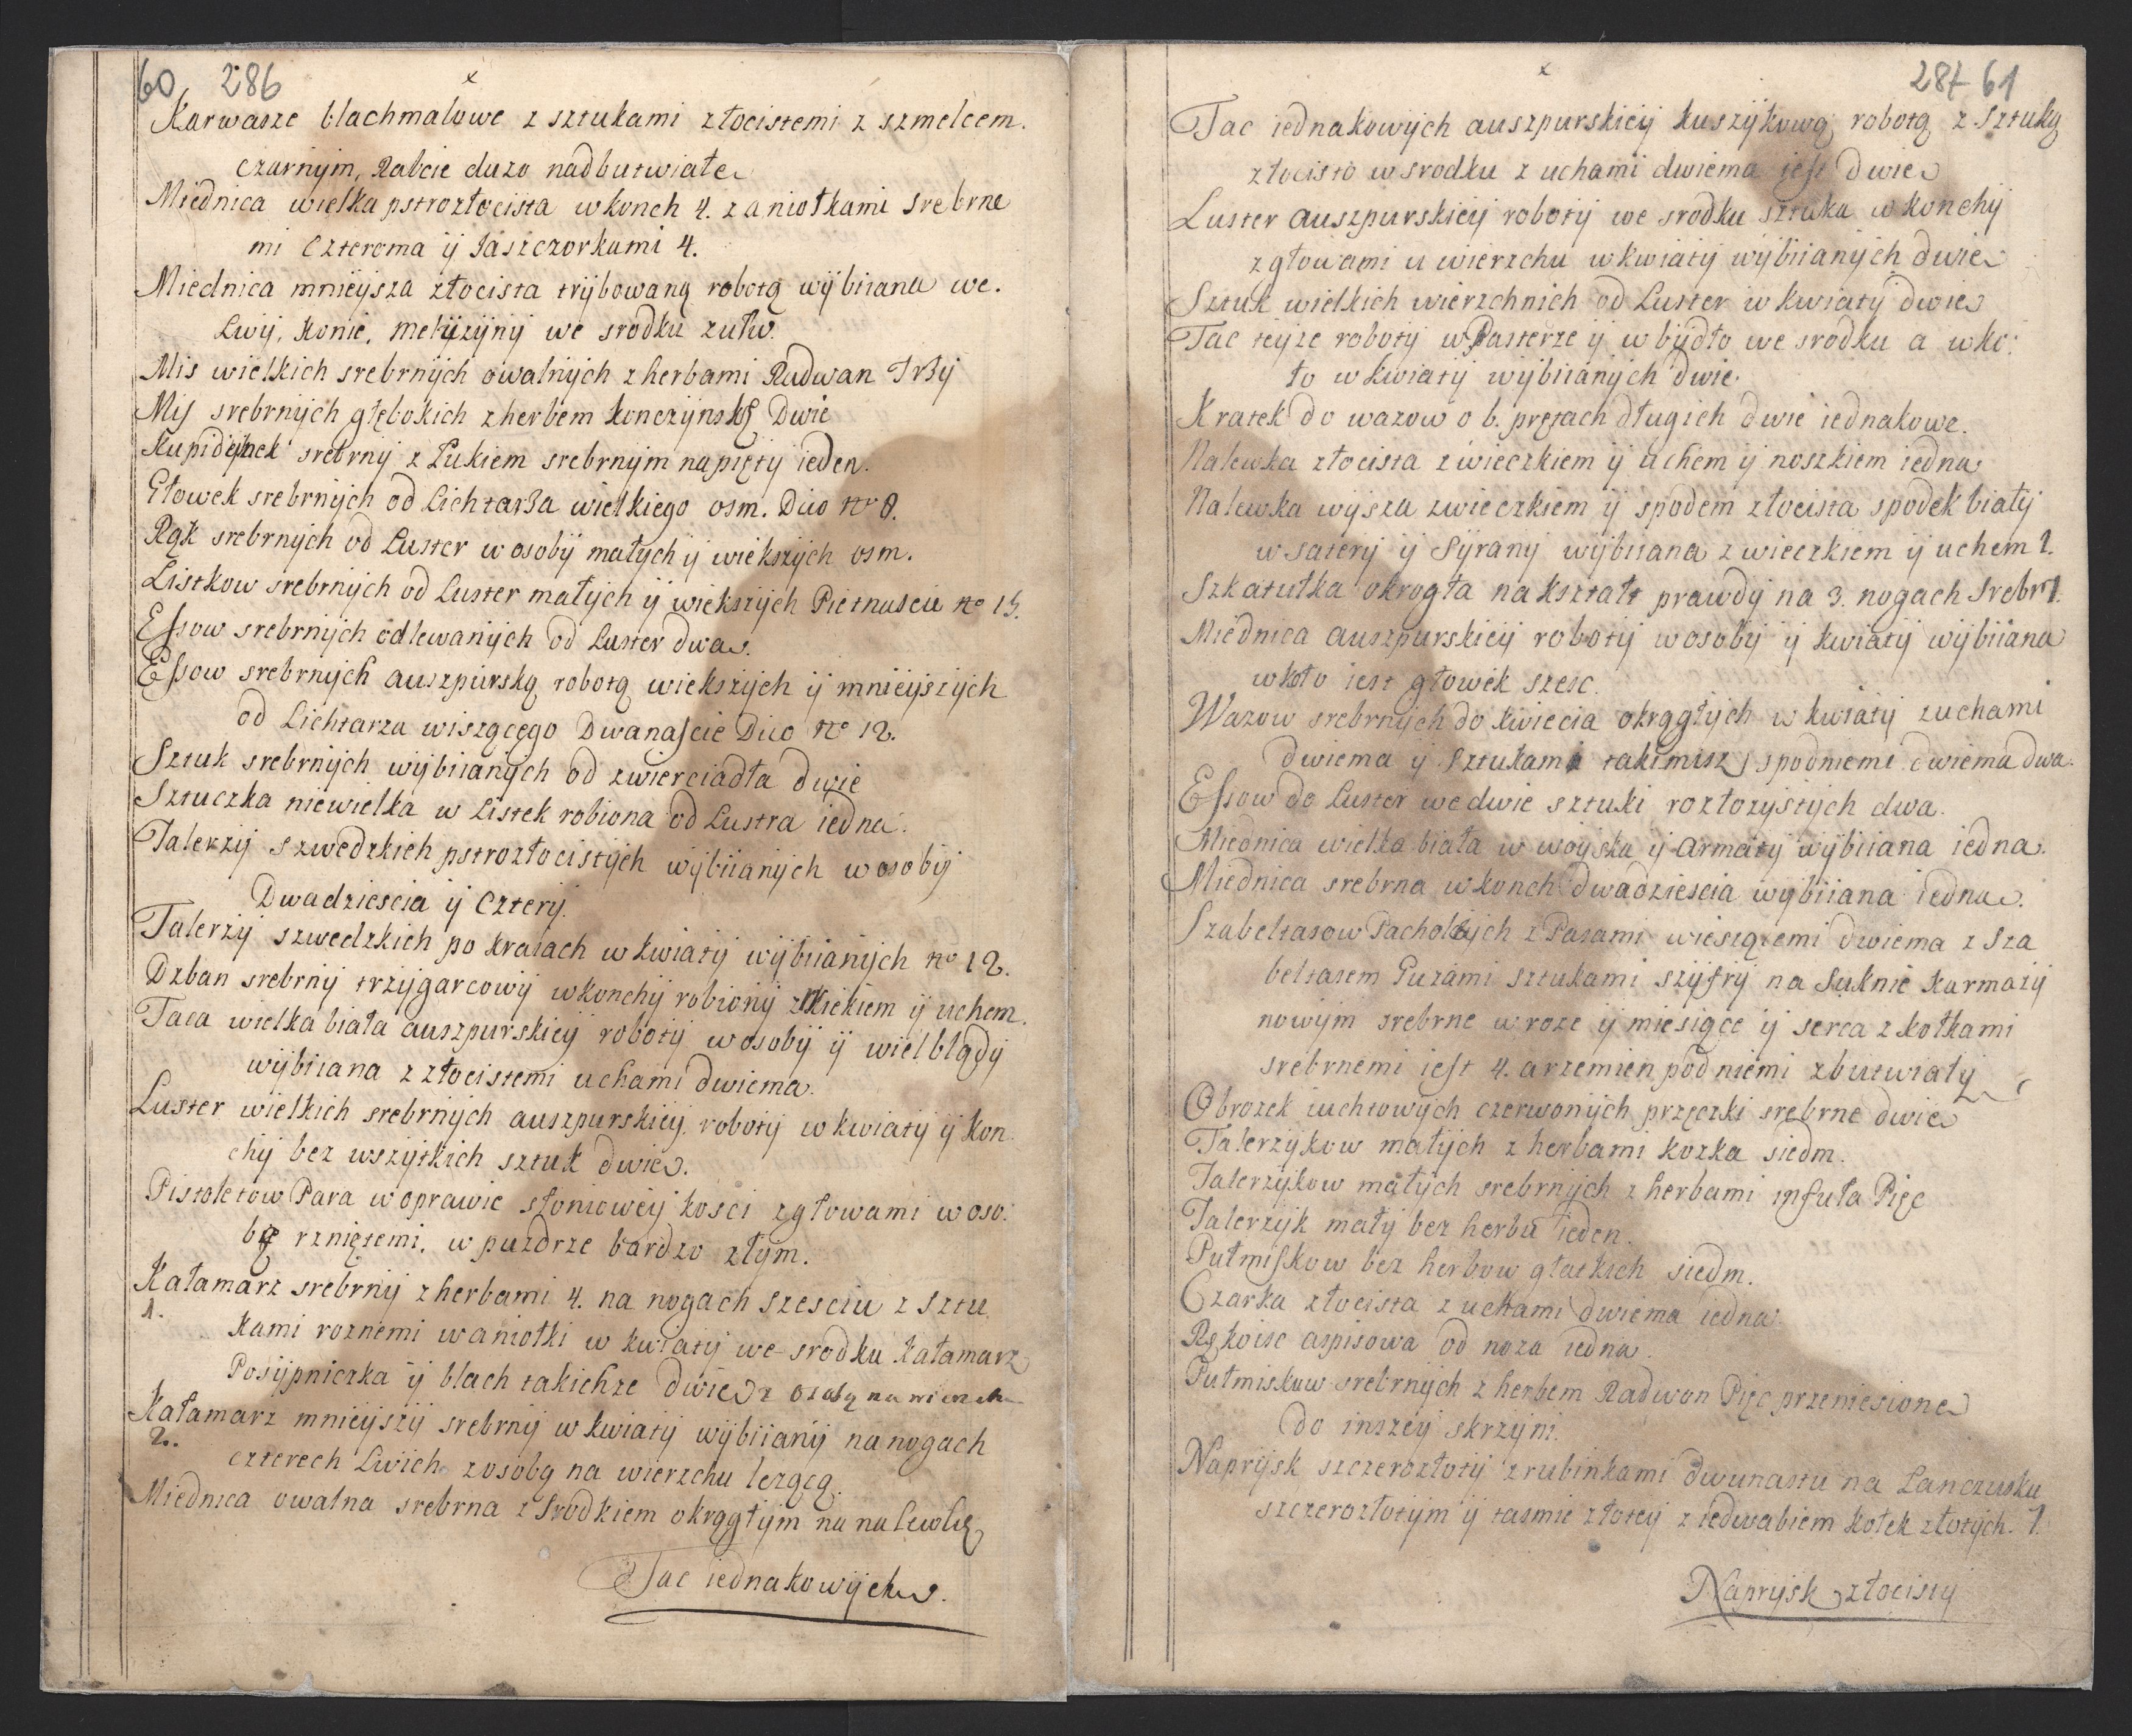 60 286
x
Karwasze blachmalowe z sztukami złocistemi z szmelcem.
czarnÿm, Rabcie duzo nadbutwiałe
Miednica wielka pstrozłocista w konch 4. z aniołkami srebrne
mi czterema ÿ Jaszczorkami 4.
Miednica mnieÿsza złocista trÿbowaną robotą wÿbiiana we.
Lwÿ, Konie, we srodku
Mis wielkich srebrnÿch owalnÿch z herbami Radwan Trzÿ
Mis srebrnÿch głębokich z herbem Dwie
srebrnÿ z Łukiem srebrnÿm napiętÿ ieden.
Głowek srebrnÿch od Lichtarza wielkiego osm. Dico nro 8.
Rąk srebrnÿch od Luster w osobÿ małÿch ÿ wiekszÿch osm.
Listkow srebrnÿch od Luster małÿch ÿ wiekszÿch Pietnascie no 15.
Essow srebrnÿch odlewanÿch od Luster dwa.
Essow srebrnÿch auszpurską robotą wiekszÿch ÿ mnieÿszÿch
od Lichtarza wiszącego Dwanascie Dico no 12.
Sztuk srebrnÿch wÿbiianÿch od zwierciadła dwie
Sztuczka niewielka w Listek robiona od Lustra iedna.
Talerzÿ szwedzkich pstrozłocistÿch wÿbiianÿch w osobÿ
Dwadziescia ÿ Czterÿ.
Talerzÿ szwedzkich po kraiach w kwiatÿ wÿbiianÿch no 12.
Dzban srebrnÿ trzÿgarcowÿ w konchÿ robionÿ z Wiekiem ÿ uchem.
Taca wielka biała auszpurskieÿ robotÿ w osobÿ ÿ wielblądÿ
wÿbiiana z złocistemi uchami dwiema.
Luster wielkich srebrnÿch auszpurskieÿ robotÿ w kwiatÿ ÿ kon
chÿ bez wszÿtkich sztuk dwie.
Pistoletow Para w oprawie słonioweÿ kosci z głowami w oso:
bÿ rzniętemi, w puzdrze bardzo złÿm.
Kałamarz srebrnÿ z herbami 4. na nogach szesciu z sztu
1.
kami roznemi w aniołki w kwiatÿ we srodku Kałamarz
Posÿpniczka ÿ blach takichze dwie z osobą na wierzchu
Kałamarz mnieÿszÿ srebrnÿ w kwiatÿ wÿbiianÿ na nogach
2.
czterech Lwich z osobą na wierzchu lezącą.
Miednica owalna srebrna z srodkiem okrągłÿm na nalewkę
Tac iednakowÿch.
287 61
x
Tac iednakowÿch auszpurskieÿ kuszÿkową robotą z sztuką
złocisto w srodku z uchami dwiema iest dwie
Luster auszpurskieÿ robotÿ we srodku sztuka w konchÿ
z głowami u wierzchu w kwiatÿ wÿbiianÿch dwie
Sztuk wielkich wierzchnich od Luster w kwiatÿ dwie
Tac teÿze robotÿ w Pasterze ÿ w bÿdło we srodku a wko:
ło w kwiatÿ wÿbiianÿch dwie.
Kratek do wazow o 6. prętach długich dwie iednakowe.
Nalewka złocista z wieczkiem ÿ uchem ÿ noszkiem iedna
Nalewka wÿsza z wieczkiem ÿ spodem złocista spodek białÿ
w saterÿ ÿ Sÿranÿ wÿbiiana z wieczkiem ÿ uchem 1.
Szkatułka okrogła na kształt prawdÿ na 3. nogach srebr 1.
Miednica auszpurskieÿ robotÿ w osobÿ ÿ kwiatÿ wÿbiiana
wkoło iest głowek szesc.
Wazow srebrnÿch do kwiecia okrągłÿch w kwiatÿ z uchami
dwiema ÿ sztukami takimisz spodniemi dwiema dwa.
Essow do Luster we dwie sztuki rozłozÿstÿch dwa.
Miednica wielka biała w woÿska ÿ Armatÿ wÿbiiana iedna.
Miednica srebrna w konch dwadziescia wÿbiiana iedna.
Szabeltasow Pacholczÿch z Pasami wieszącemi dwiema z Sza
beltasem Guzami sztukami szÿfrÿ na suknie karmazÿ
nowÿm srebrne w roze ÿ miesiące ÿ serca z kołkami
srebrnemi iest 4. a rzemien pod niemi zbutwiałÿ
Obrozek iuchtowÿch czerwonÿch przęczki srebrne dwie
Talerzÿkow małÿch z herbami kozka siedm.
Talerzÿkow małÿch srebrnÿch z herbami infuła Pięc
Talerzÿk małÿ bez herbu ieden.
Pułmiskow bez herbow głatkich siedm.
Czarka złocista z uchami dwiema iedna.
Rękoisc aspisowa od noza iedna.
Pułmiskow srebrnÿch z herbem Radwan Pięc przeniesione
do inszeÿ skrzÿni.
Naprÿsk szczerozłotÿ z rubinkami dwunastu na Łanczusku
szczerozłotÿm ÿ tasmie złoteÿ z iedwabiem kołek złotÿch. 1.
Naprÿsk złocistÿ